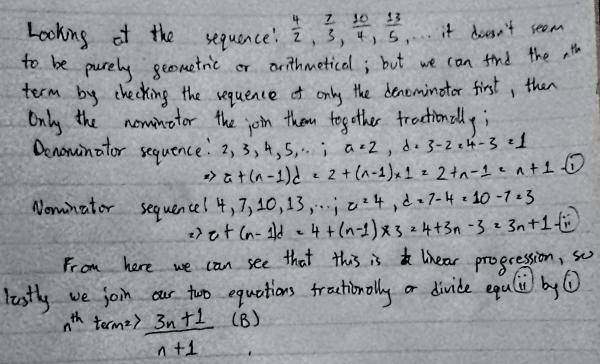 Looking at the sequence: 4/2, 7/3, 10/4, 13/5, ... it doesn't seem
to be purely geometric or arithmetical; but we can find the nth
term by checking the sequence of only the denominator first, then
Only the nominator the join them together fractionally;
Denominator sequence: 2, 3, 4, 5, ...; a=2, d=3-2=4-3=1
=> a+(n-1)d = 2+(n-1)×1 = 2+n-1 = n+1 -(i)
Nominator sequence: 4, 7, 10, 13, ...; a=4, d=7-4=10-7=3
=> a+(n-1)d = 4+(n-1)×3 = 4+3n-3 = 3n+1 -(ii)
From here we can see that this is linear progression, so
lastly we join our two equations fractionally or divide equ(ii) by (i)
nth term=> 3n+1 (B)
n+1 .